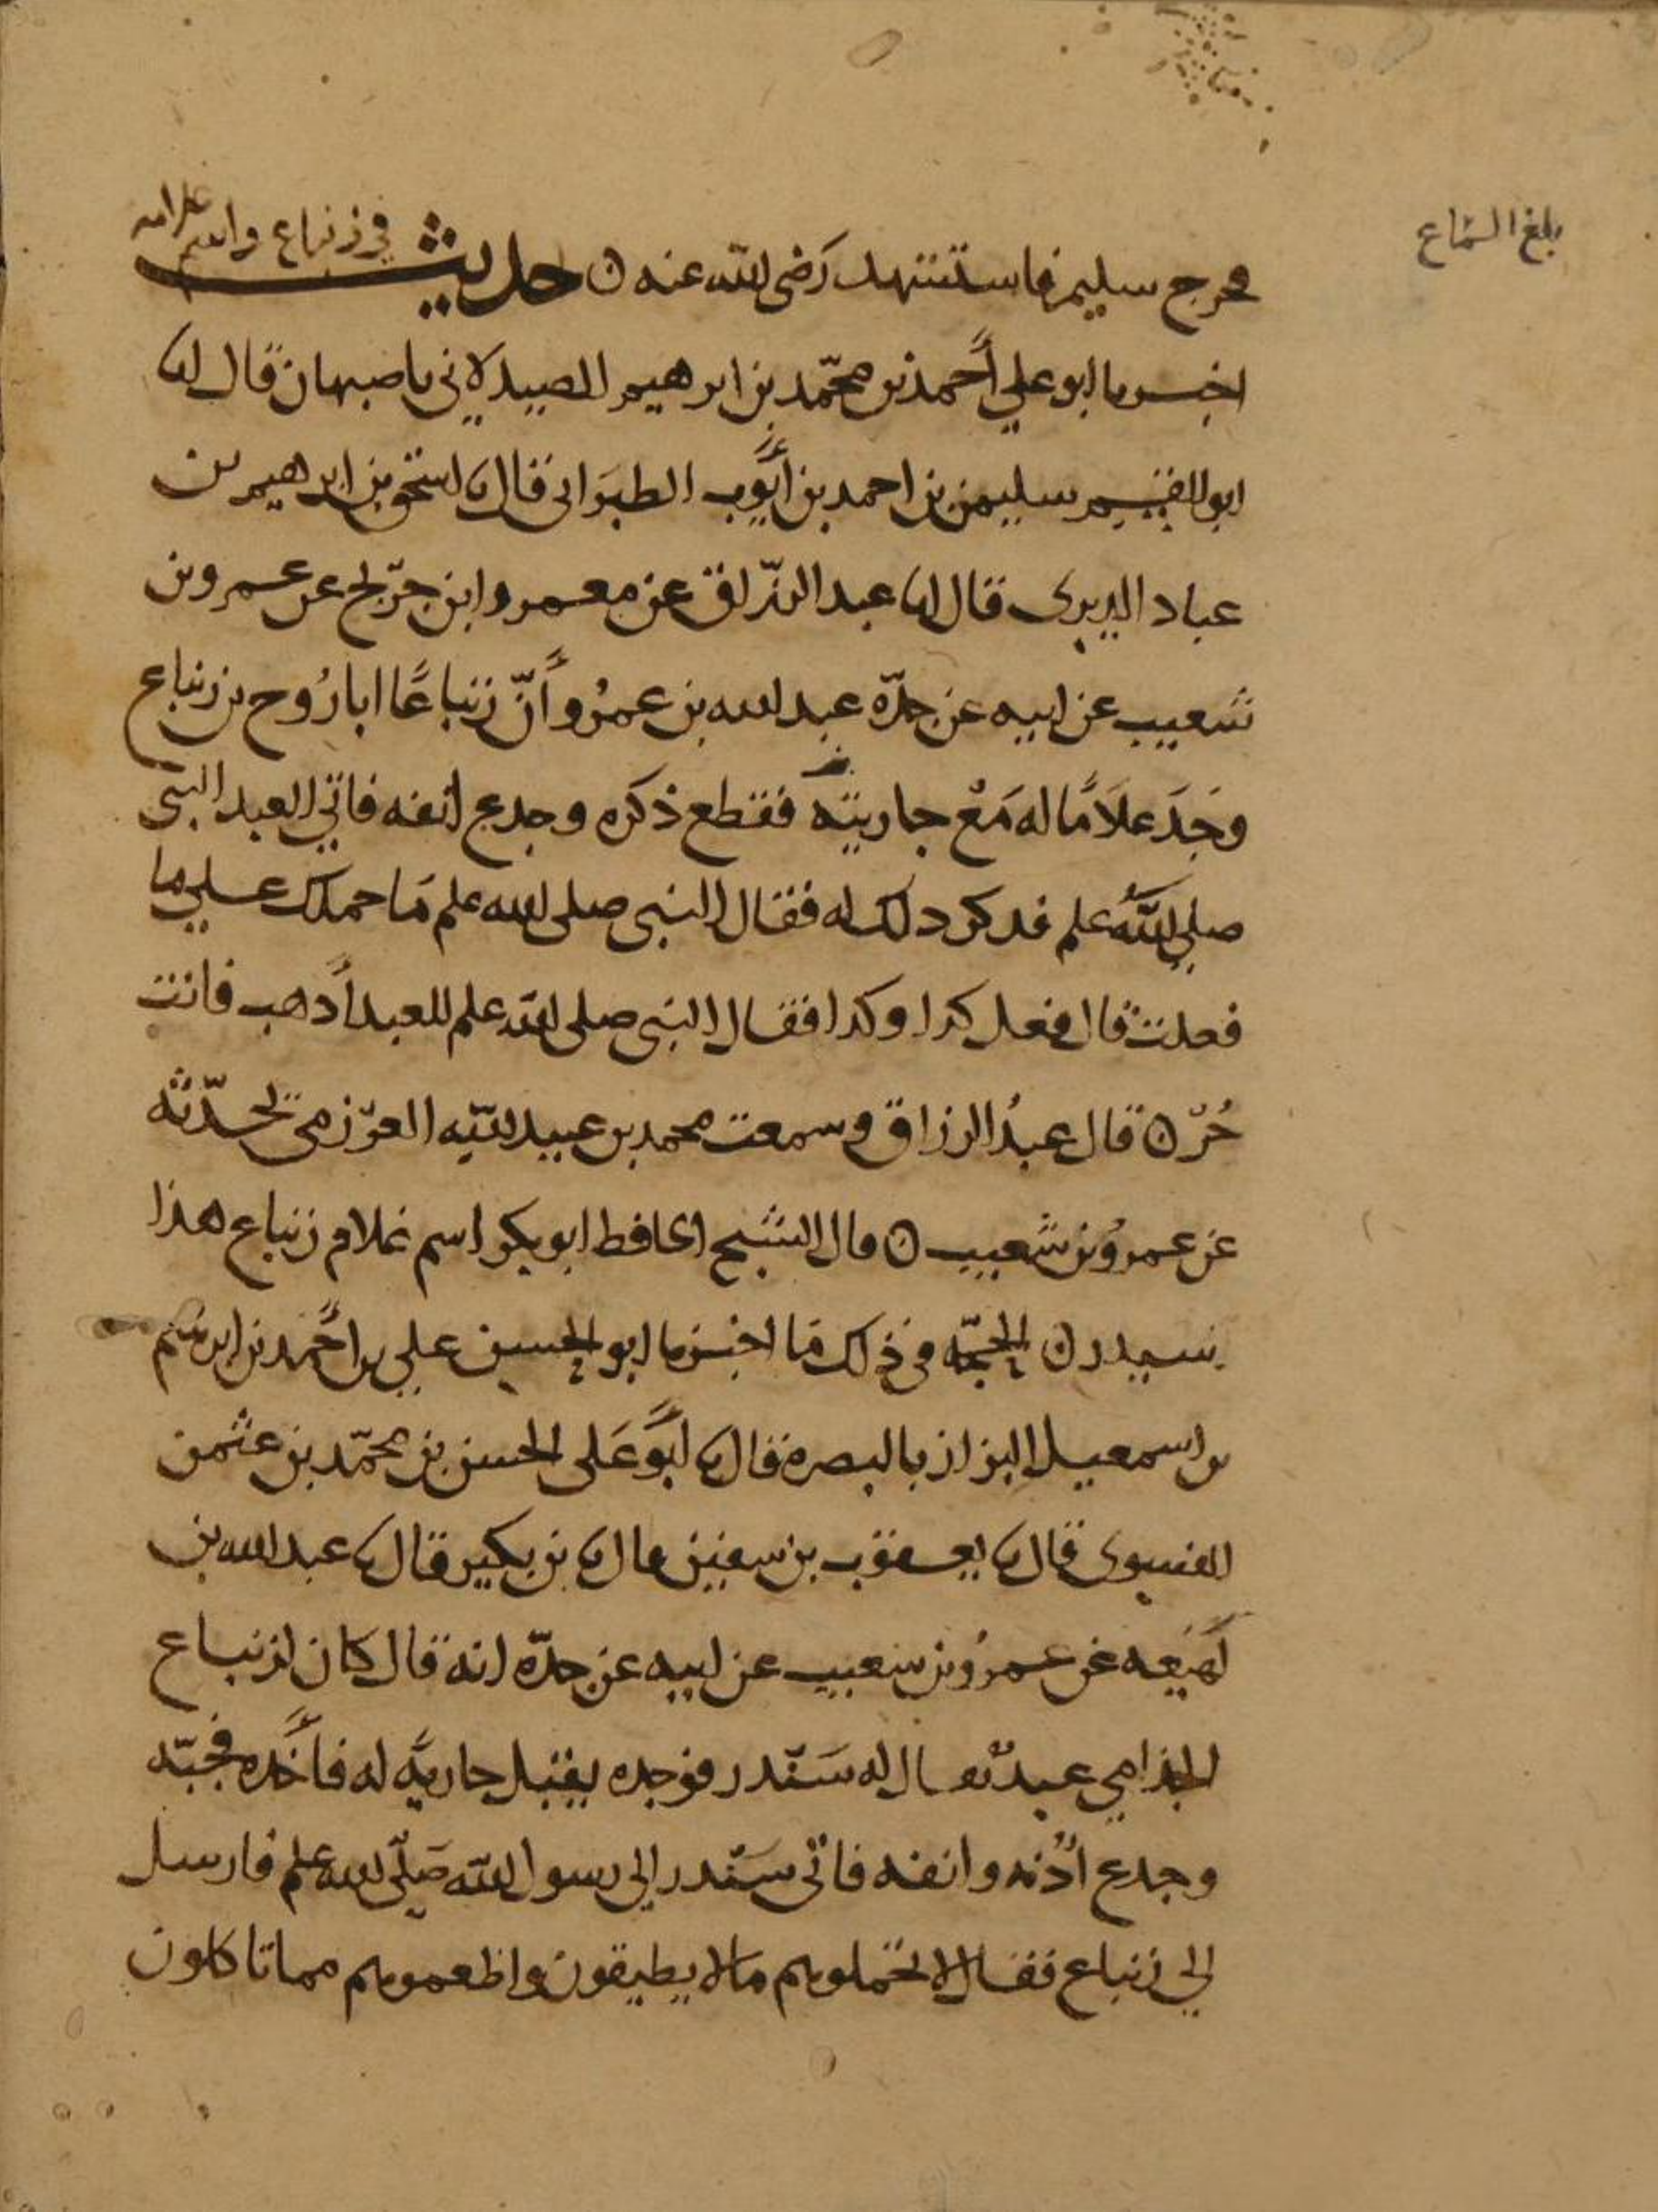 بلغ السماع
في زنباع واسم غلامه
فخرج سليم فاستشهد رضي الله عنه ن حديث
اخبرنا ابو علي أحمد بن محمد بن ابرهيم الصيدلاني باصبهان قال انا
ابو القسم سليمن بن احمد بن أيوب الطبراني قال نا اسحق بن ابرهيم بن
عباد الدبري قال انا عبد الرزاق عن معمر وابن جريج عن عمرو بن
شعيب عن ابيه عن جده عبد الله بن عمرو أن زنباعا ابا روح بن زنباع
وجد غلاما له مع جاريته فقطع ذكره وجدع انفه فاتي العبد النبي
صلى الله علم فذكر ذلك له فقال النبي صلى الله علم ما حملك علي ما
فعلت قال فعل كذا وكذا فقال النبي صلى الله علم للعبد أذهب فانت
حر ن قال عبد الرزاق وسمعت محمد بن عبيد الله العرزمي يحدثه
عن عمرو بن شعيب ن قال الشيخ الحافظ ابو بكر اسم غلام زنباع هذا
سندر ن الحجة في ذلك ما اخبرنا ابو الحسين علي بن أحمد بن ابرهيم
بن اسمعيل البزاز بالبصرة قال نا أبو على الحسن بن محمد بن عثمن
الفسوي قال نا يعقوب بن سفين قال نا بن بكير قال نا عبد الله بن
لهيعه عن عمرو بن شعيب عن ابيه عن جده انه قال كان لزنباع
الجذامي عبد يقال له سندر فوجده يقبل جارية له فأخذه فجبه
وجدع أذنه وانفه فاتى سندر إلى رسول الله صلى الله علم فارسل
إلي زنباع فقال لا تحملوهم ما لا يطيقون واطعموهم مما تاكلون